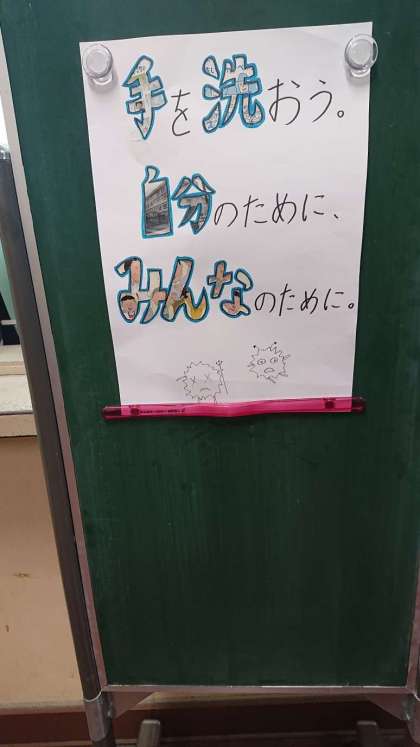 手を洗おう。
自分のために、
みんなのために。